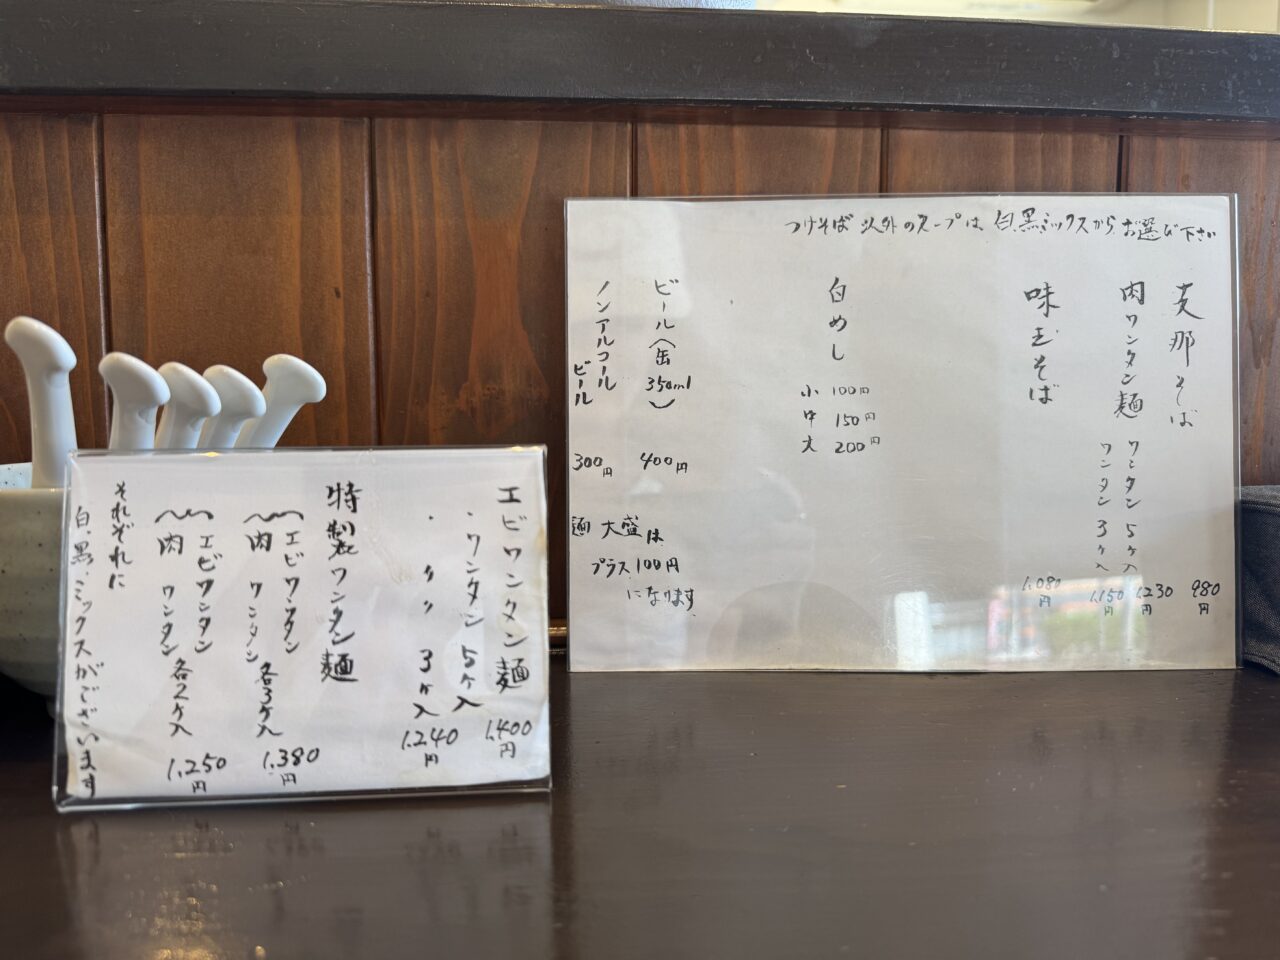 つけそば以外のスープは白、黒、ミックスからお選び下さい
支那そば 980円
肉ワンタン麺 ワンタン5ヶ入 1,230円
ワンタン3ヶ入 1,150円
味玉そば 1,080円
白めし
小 100円
中 150円
大 200円
ビール(缶350ml) 400円
ノンアルコールビール 300円
麺大盛は
プラス100円
になります
エビワンタン麺 1,400円
・ワンタン5ヶ入
・〃〃3ヶ入 1,240円
特製ワンタン麺
エビワンタン
肉ワンタン 各3ヶ入 1,380円
エビワンタン
肉ワンタン 各2ヶ入 1,250円
それぞれに
白.黒.ミックスがございます